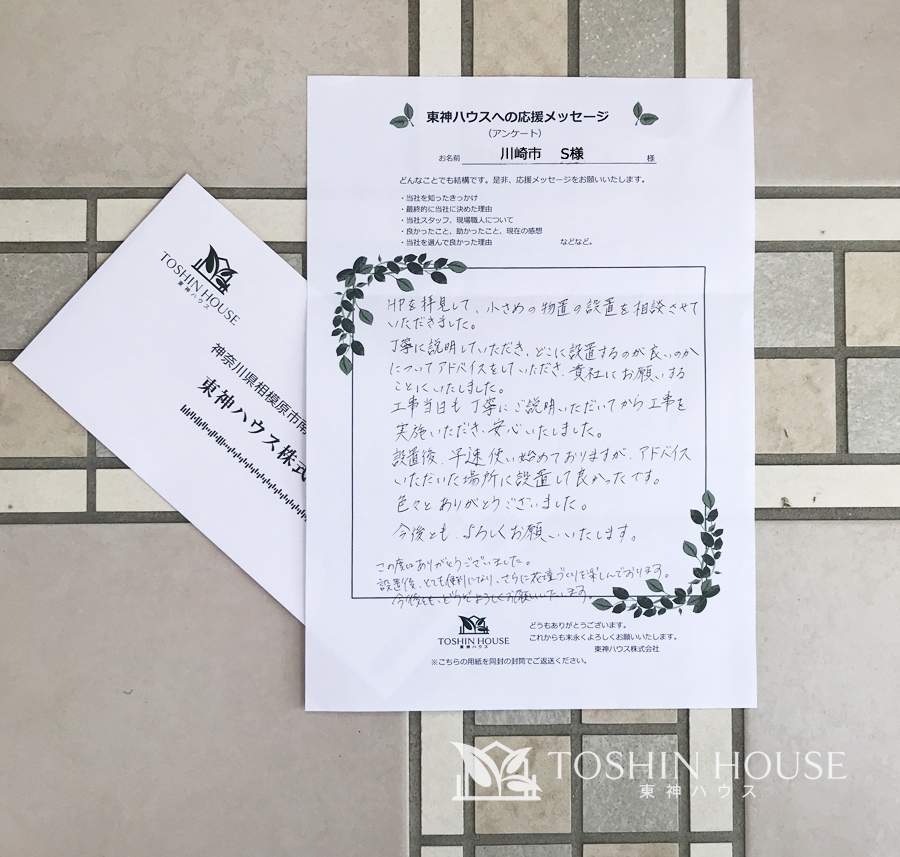 東神ハウスへの応援メッセージ
(アンケート)
お名前 川崎市 S様 様
どんなことでも結構です。是非、応援メッセージをお願いいたします。
・当社を知ったきっかけ
・最終的に当社に決めた理由
・当社スタッフ、現場職人について
・良かったこと、助かったこと、現在の感想
・当社を選んで良かった理由 などなど。
HPを拝見して、小さめの物置の設置を相談させて
いただきました。
丁寧に説明していただき、どこに設置するのが良いのか
についてアドバイスをしていただき、貴社にお願いする
ことにいたしました。
工事当日も丁寧にご説明いただいてから工事を
実施いただき、安心いたしました。
設置後、早速使い始めておりますが、アドバイス
いただいた場所に設置して良かったです。
色々とありがとうございました。
今後とも、よろしくお願いいたします。
この度はありがとうございました。
設置後、とても便利になり、さらに花壇づくりを楽しんでおります。
今後とも、どうぞよろしくお願いいたします。
TOSHIN HOUSE
東神ハウス
どうもありがとうございます。
これからも末永くよろしくお願いいたします。
東神ハウス株式会社
※こちらの用紙を同封の封筒でご返送ください。
TOSHIN HOUSE
東神ハウス
神奈川県相模原市南
東神ハウス株式
TOSHIN HOUSE
東神ハウス